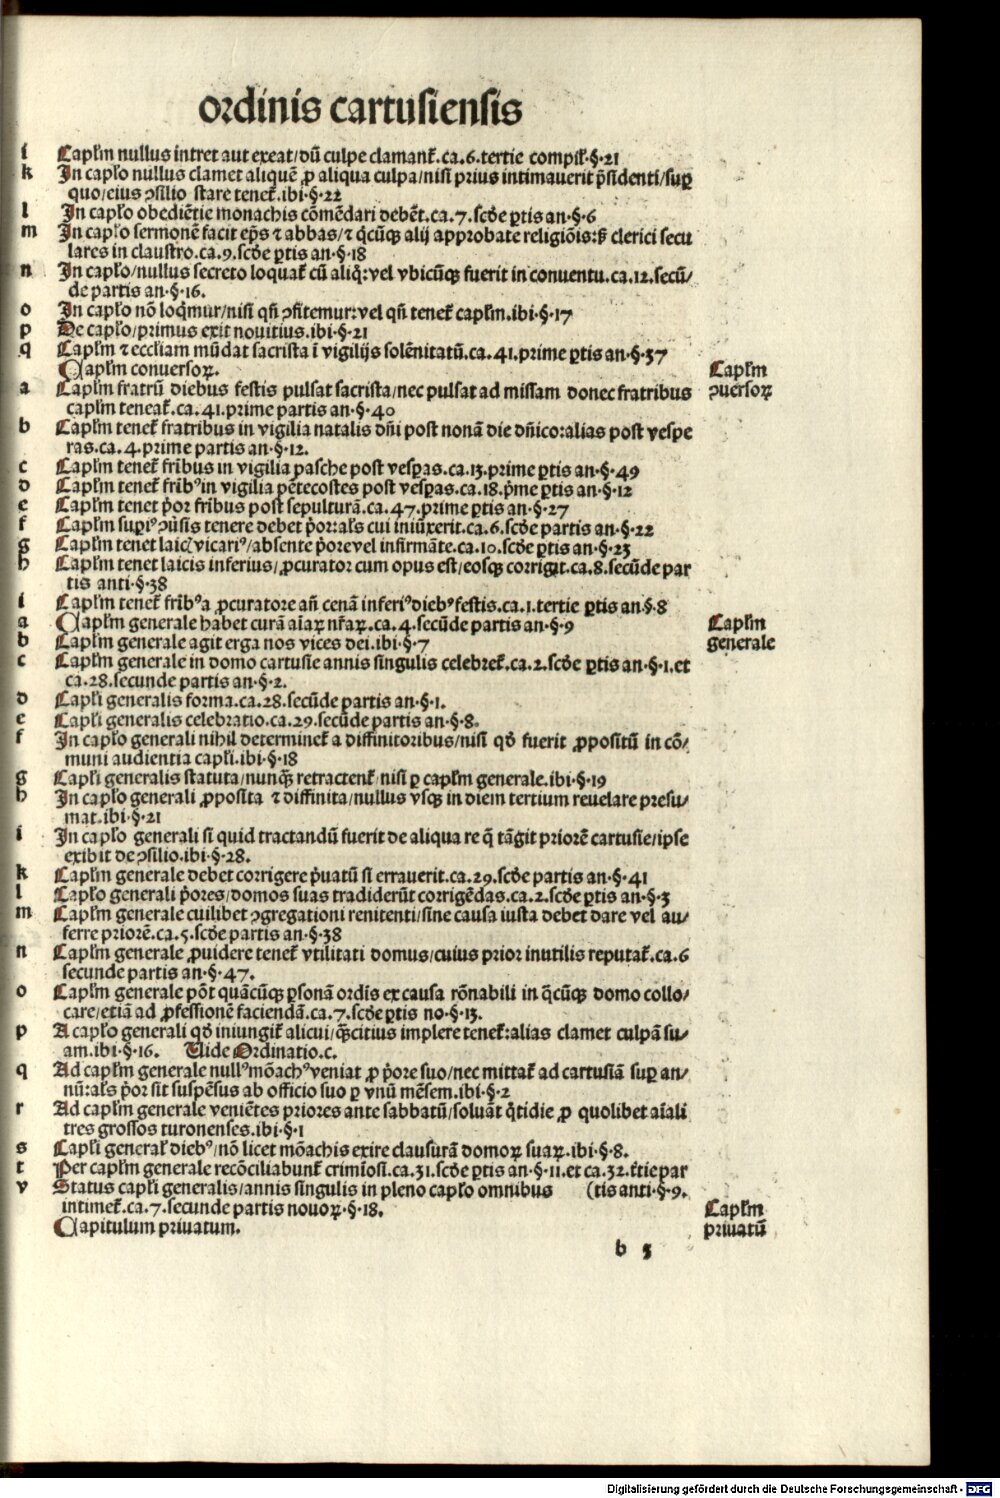 ordinis cartusiensis
i Capl'm nullus intret aut exeat/dū culpe clamant᷑.ca.6.tertie compil᷑.§.21
k In capl'o nullus clamet aliquē ꝓ aliqua culpa/nisi prius intimauerit p̄sidenti/suꝑ
quo/eius ꝯsilio stare tenet᷑.ibi.§.22
l In capl'o obediētie monachis cōmēdari debēt.ca.7.scd'e ꝑtis an.§.6
m In capl'o sermonē facit ep̄s ⁊ abbas/⁊ q̇cūqꝫ alij approbate religiōis:ß clerici secu
lares in claustro.ca.9.scd'e ꝑtis an.§.18
n In capl'o/nullus secreto loquat᷑ cū aliq̇:vel vbicūqꝫ fuerit in conuentu.ca.12.secū/
de partis an.§.16.
o In capl'o nō loq̇mur/nisi qn̄ ꝯfitemur:vel qn̄ tenet᷑ capl'm.ibi.§.17
p De capl'o/primus exit nouitius.ibi.§.21
q Capl'm ⁊ eccl'iam mūdat sacrista ī vigilijs solēnitatū.ca.41.prime ꝑtis an.§.37
Capl'm conuersoꝝ.
Capl'm
ꝯuersoꝝ
a Capl'm fratrū diebus festis pulsat sacrista/nec pulsat ad missam donec fratribus
capl'm teneat᷑.ca.41.prime partis an.§.40
b Capl'm tenet᷑ fratribus in vigilia natalis dn̄i post nonā die dn̄ico:alias post vespe
ras.ca.4.prime partis an.§.12.
c Capl'm tenet᷑ fr̄ibus in vigilia pasche post vesꝑas.ca.13.prime ꝑtis an.§.49
d Capl'm tenet᷑ fr̄ibꝰ in vigilia pētecostes post vesꝑas.ca.18.p̄me ꝑtis an.§.12
e Capl'm tenet p̓or fr̄ibus post sepulturā.ca.47.prime ꝑtis an.§.27
f Capl'm suꝑiꝰ ꝯūsis tenere debet p̓or:al's cui iniūxerit.ca.6.scd'e partis an.§.22
g Capl'm tenet laicꝭ vicariꝰ/absente p̓ore vel infirmāte.ca.10.scd'e ꝑtis an.§.23
h Capl'm tenet laicis inferius/ꝓcurator cum opus est/eosqꝫ corrigit.ca.8.secūde par
tis anti.§.38
i Capl'm tenet᷑ fr̄ibꝰ a ꝓcuratore an̄ cenā inferiꝰ diebꝰ festis.ca.1.tertie ꝑtis an.§.8
a Capl'm generale habet curā aīaꝝ nr̄aꝝ.ca.4.secūde partis an.§.9
Capl'm
generale
b Capl'm generale agit erga nos vices dei.ibi.§.7
c Capl'm generale in domo cartusie annis singulis celebret᷑.ca.2.scd'e ꝑtis an.§.1.et
ca.28.secunde partis an.§.2.
d Capl'i generalis forma.ca.28.secūde partis an.§.1.
e Capl'i generalis celebratio.ca.29.secūde partis an.§.8.
f In capl'o generali nihil determinet᷑ a diffinitoribus/nisi qd' fuerit ꝓpositū in cō/
muni audientia capl'i.ibi.§.18
g Capl'i generalis statuta/nunqꝫ̄ retractent᷑/nisi ꝑ capl'm generale.ibi.§.19
h In capl'o generali ꝓposita ⁊ diffinita/nullus vsqꝫ in diem tertium reuelare presu/
mat.ibi.§.21
i In capl'o generali si quid tractandū fuerit de aliqua re q̄ tāgit priorē cartusie/ipse
exibit de ꝯsilio.ibi.§.28.
k Capl'm generale debet corrigere p̓uatū si errauerit.ca.29.scd'e partis an.§.41
l Capl'o generali p̓ores/domos suas tradiderūt corrigēdas.ca.2.scd'e ꝑtis an.§.3
m Capl'm generale cuilibet ꝯgregationi renitenti/sine causa iusta debet dare vel au/
ferre priorē.ca.5.scd'e partis an.§.38
n Capl'm generale ꝓuidere tenet᷑ vtilitati domus/cuius prior inutilis reputat᷑.ca.6
secunde partis an.§.47.
o Capl'm generale pōt quācūqꝫ ꝑsonā ordīs ex causa rōnabili in q̄cūqꝫ domo collo/
care/etiā ad ꝓfessionē faciendā.ca.7.scd'e ꝑtis no.§.13.
p A capl'o generali qd' iniungit᷑ alicui/qꝫ̄citius implere tenet᷑:alias clamet culpā su/
am.ibi.§.16. Vide Ordinatio.c.
q Ad capl'm generale nullꝰ mōachꝰ veniat ꝓ p̓ore suo/nec mittat᷑ ad cartusiā suꝑ an/
nū:al's p̓or sit suspēsus ab officio suo ꝑ vnū mēsem.ibi.§.2
r Ad capl'm generale veniētes priores ante sabbatū/soluāt q̇tidie ꝓ quolibet aīali
tres grossos turonenses.ibi.§.1
s Capl'i general᷑ diebꝰ/nō licet mōachis exire clausurā domoꝝ suaꝝ.ibi.§.8.
t Per capl'm generale recōciliabunt᷑ crimīosi.ca.31.scd'e ꝑtis an.§.11.et ca.32.t̄tie par
v Status capl'i generalis/annis singulis in pleno capl'o omnibus (tis anti.§.9.
intimet᷑.ca.7.secunde partis nouoꝝ.§.18.
Capitulum priuatum.
Capl'm
priuatū
b 3
Digitalisierung gefördert durch die Deutsche Forschungsgemeinschaft - DFG